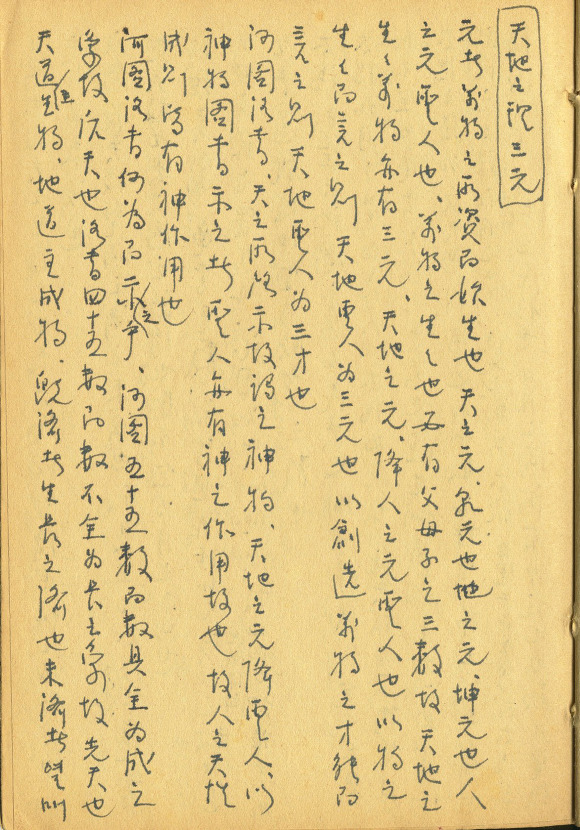 天地之現三元
元者萬物之所資而始生也 天之元、乾元也地之元、坤元也人
之元聖人也、萬物之生々也必有父母子之三數故天地之
生々萬物亦有三元、天地之元、降人之元聖人也以物之
生々而言之則 天地聖人為三元也以創造萬物之才能而
言之則 天地聖人為三才也
河圖洛書、天之所啓示故謂之神物、天地之元降聖人、以
神物圖書示之者 聖人亦有神之作用故也 故人之天性
成則得有神作用也
河圖洛書何為而示之乎、河圖五十五數而數具全為成之
象故后天也洛書四十五數而數不全為長之象故先天也
天道主生物、地道主成物、既濟者生長之濟也未濟者